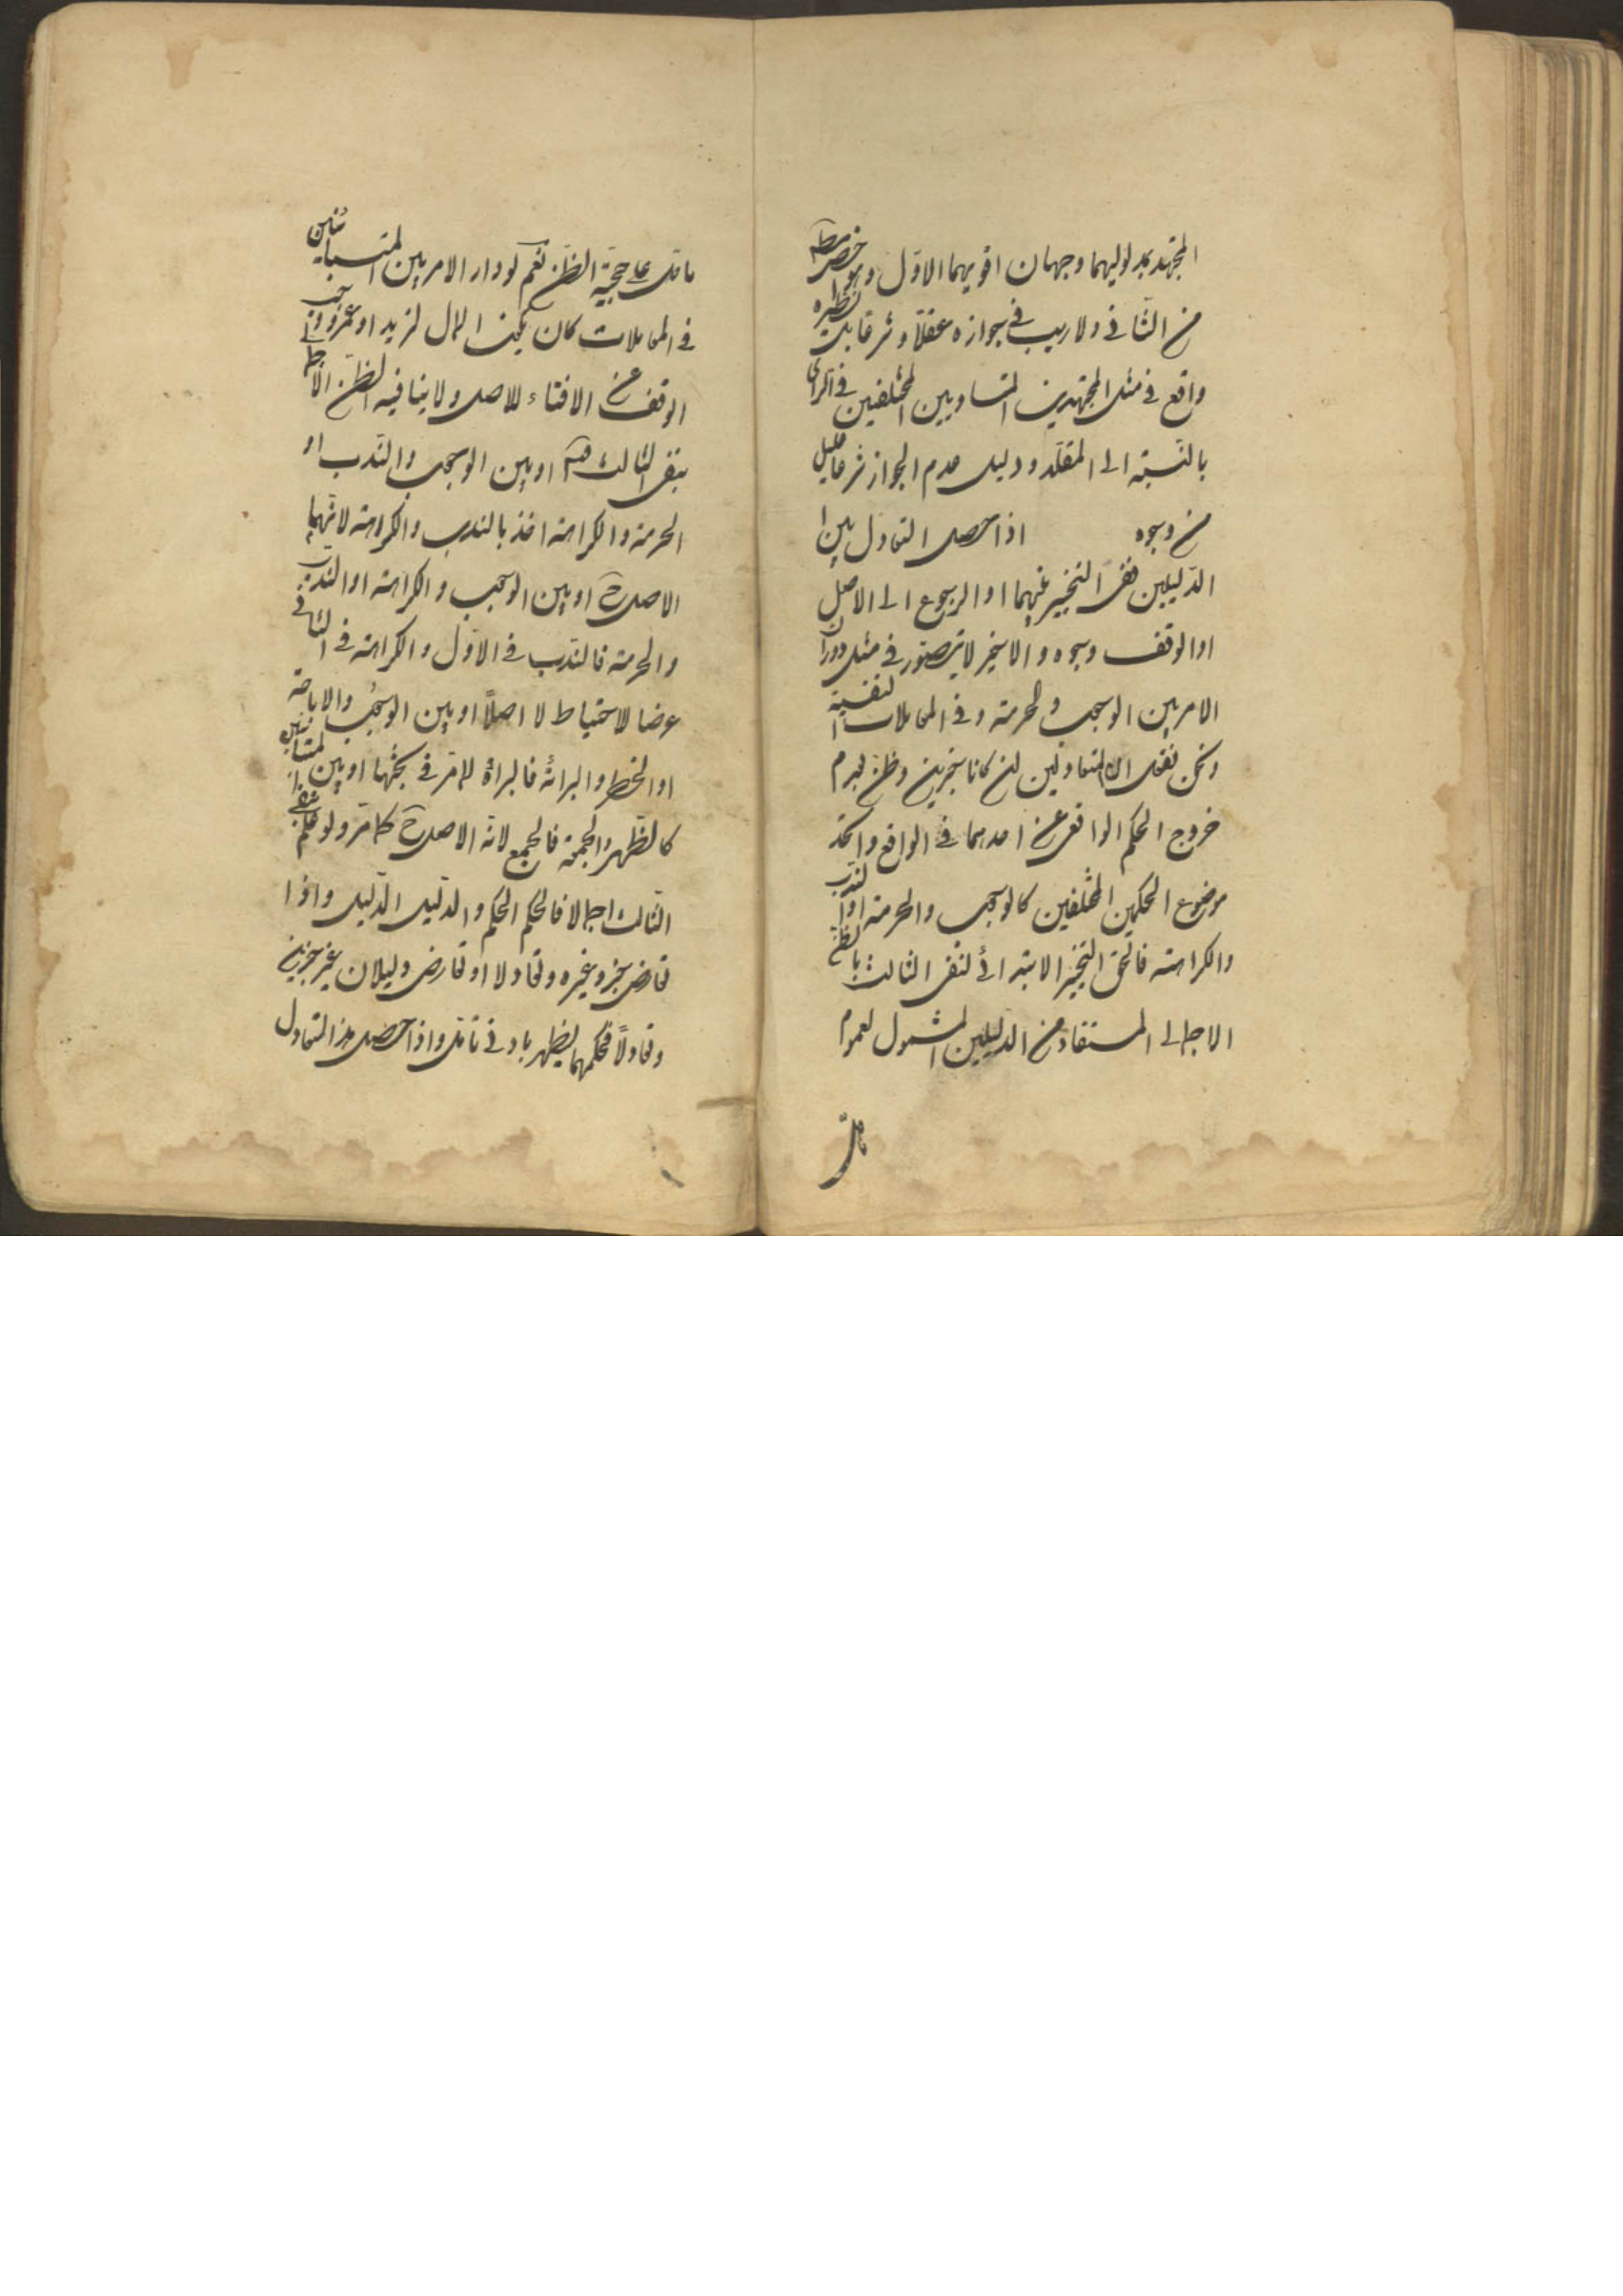 المجتهد بمدلوليهما وجهان اقويهما الاوّل وهو اخص مط
من الثانى ولا ريب فى جوازه عقلا وشرعا بل نظيره
واقع فى مثل المجتهدين المتساويين المختلفين فى الراى
بالنسبة الى المقلد ودليل عدم الجواز شرعا عليل
من وجوه اذا حصل التعادل بين
الدليلين ففى التخيير بينهما او الرجوع الى الاصل
او الوقف وجوه والاخير لا يتصور فى مثل دوران
الامر بين الوجوب والحرمة وفى المعاملات
ونحن نقول ان المتعادلين ان كانا خبرين وظن لعدم
خروج الحكم الواقعى عن احدهما فى الواقع واتحد
موضوع الحكمين المختلفين كالوجوب والحرمة او الندب
والكراهة فالحق التخيير الابتدائى لنفى الثالث بالظن
الاجمالى المستفاد من الدليلين المشمول لعموم
مادل
مادل على حجية الظن نعم لو دار الامر بين المتباينين
فى المعاملات كان يكون المال لزيد او عمرو وجب
الوقف عن الافتاء للاصل ولا ينافيه الظن الاجمالى
بنفى الثالث او بين الوجوب والندب او
الحرمة والكراهة اخذ بالندب والكراهة لانهما
الاصل ح او بين الوجوب والكراهة او الندب
والحرمة فالندب فى الاوّل والكراهة فى الثانى
عرضا للاحتياط لا اصلاً او بين الوجوب والاباحة
او الحظر والبرائة فالبراة لما مر فى بحثها او بين المتباينين
كالظهر والجمعة فالجمع لانه الاصل ح كما مر ولو علم نفى
الثالث اجمالا فالحكم الحكم والدليل الدليل واذا
تعارض خبر وغيره وتعادلا او تعارض دليلان غير خبرين
وتعادلاً فحكمهما يظهر بادنى تامل واذا حصل هذا التعادل